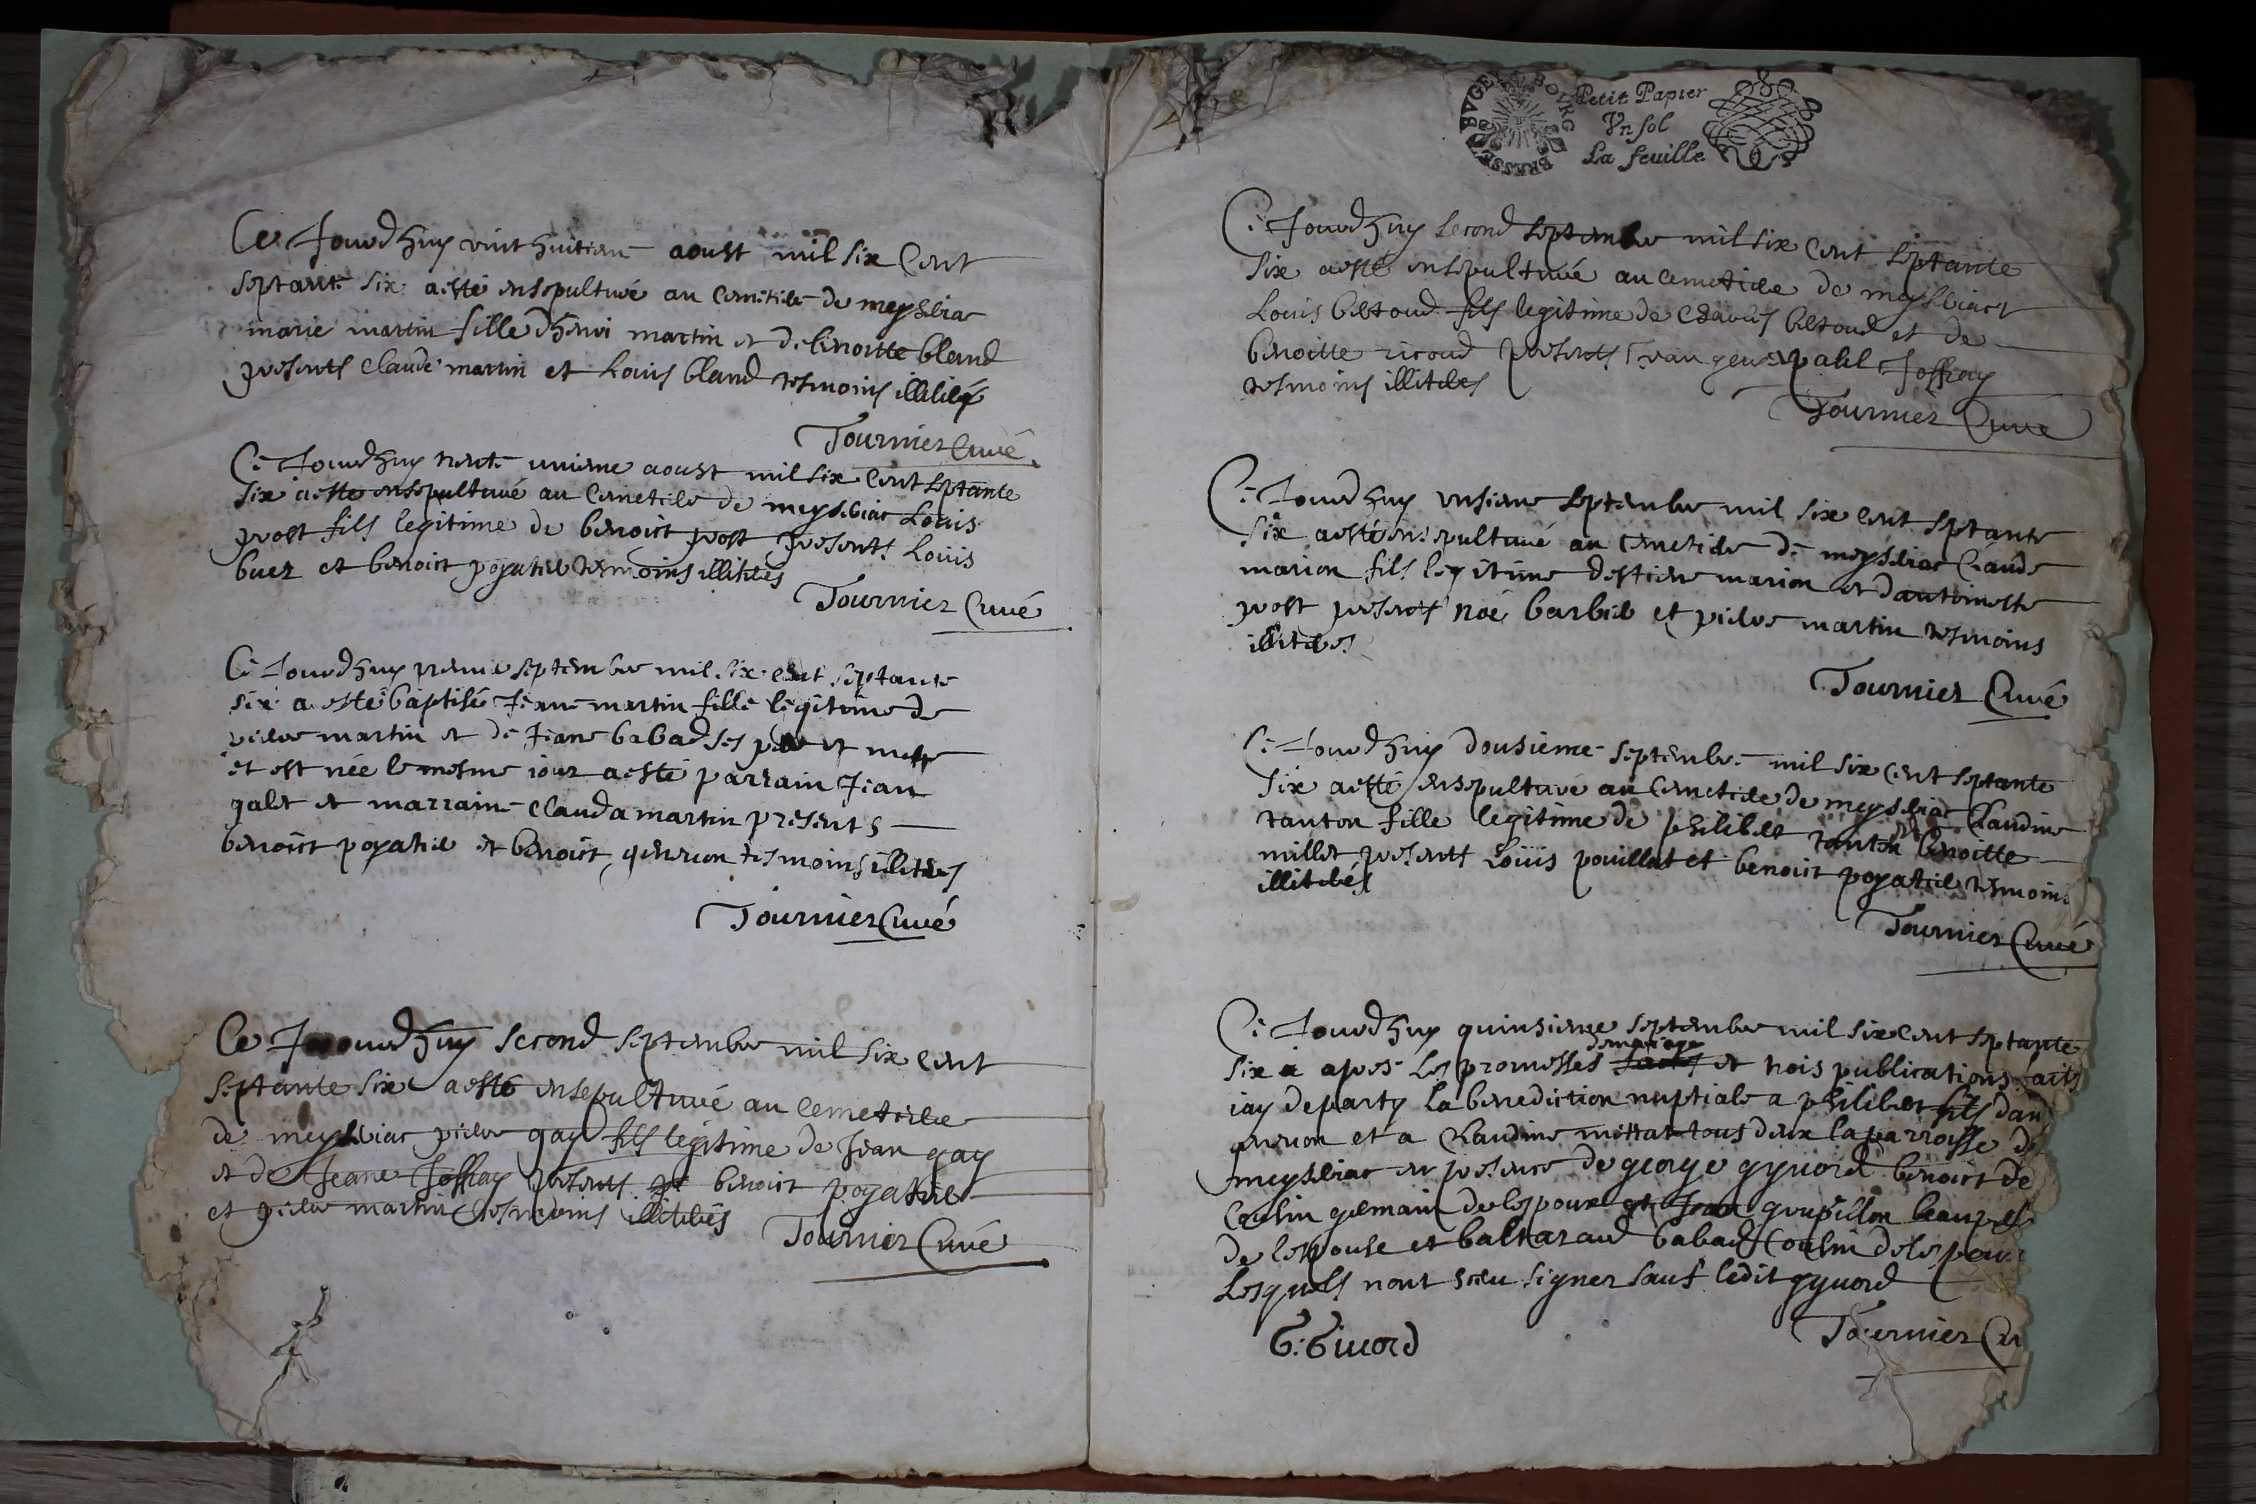 Ce Jourd huy vint huitieme aoust mil six Cent
septante six a esté ensepulturé au Cemetiere de meysseria
marie martin fille d henri martin et de benoitte bland
presents claude martin et Louis bland tesmoins illiterés
Tournier Curé
Ce Jourd huy trente unieme aoust mil six Cent septante
six a esté ensepulturé au Cemetiere de meysseriac Louis
prost fils legitime de benoist prost presents Louis
buer et benoist poyatier tesmoins illiterés
Tournier Curé
Ce Jourd huy premier septembre mil six cent septante
six a esté baptisée Jeane martin fille legitime de
pierre martin et de Jeane babad ses pere et mere
et est née le mesme iour a esté parrain Jean
galet et marraine clauda martin presents
benoist poyatier et benoist genevon tesmoins illiterés
Tournier Curé
Ce Jourd huy second septembre mil six cent
septante six a esté ensepulturé au cemetiere
de meysseriac pierre gay fils legitime de Jean gay
et de Jeane Joffray presents benoist poyatier
et pierre martin tesmoins illiterés
Tournier Curé
BRESSE BVGEY BOVRG
Petit Papier
Vn sol
La feuille
Ce Jourd huy second septembre mil six cent septante
six a esté ensepulturé au cemetiere de meysseriact
Louis bertoud fils legitime de Charles bertoud et de
benoitte ricoud presents Joffray
tesmoins illiteres
Tournier Curé
Ce Jourd huy unsieme septembre mil six cent septante
six a esté ensepulturé au cemetiere de meysseriac Claude
marion fils legitime destiene marion et dantoinette
prost presents noé barbier et pierre martin tesmoins
illiteres
Tournier Curé
Ce Jourd huy dousieme septembre mil six cent septante
six a esté ensepulturé au Cemetiere de meysseriac Claudine
tanton fille legitime de philibert tanton benoitte
millet presents Louis pouillat et benoist poyatier tesmoins
illiterés
Tournier Curé
Ce Jourd huy quinsieme septembre mil six cent septante
six a apres les promesses de mariage et trois publications faites
iay departy la benediction nuptiale a philibert fils dan
et a Claudine mittat tous deux la parroisse de
meysseriac en presence de george gyvord benoist de
Cousin germain de lespoux goupillon beaupere
de lespouse et baltazard babad Cousin de lespouse
Lesquels nont sceu signer sauf ledit gyvord
G: Givord
Tournier Cu